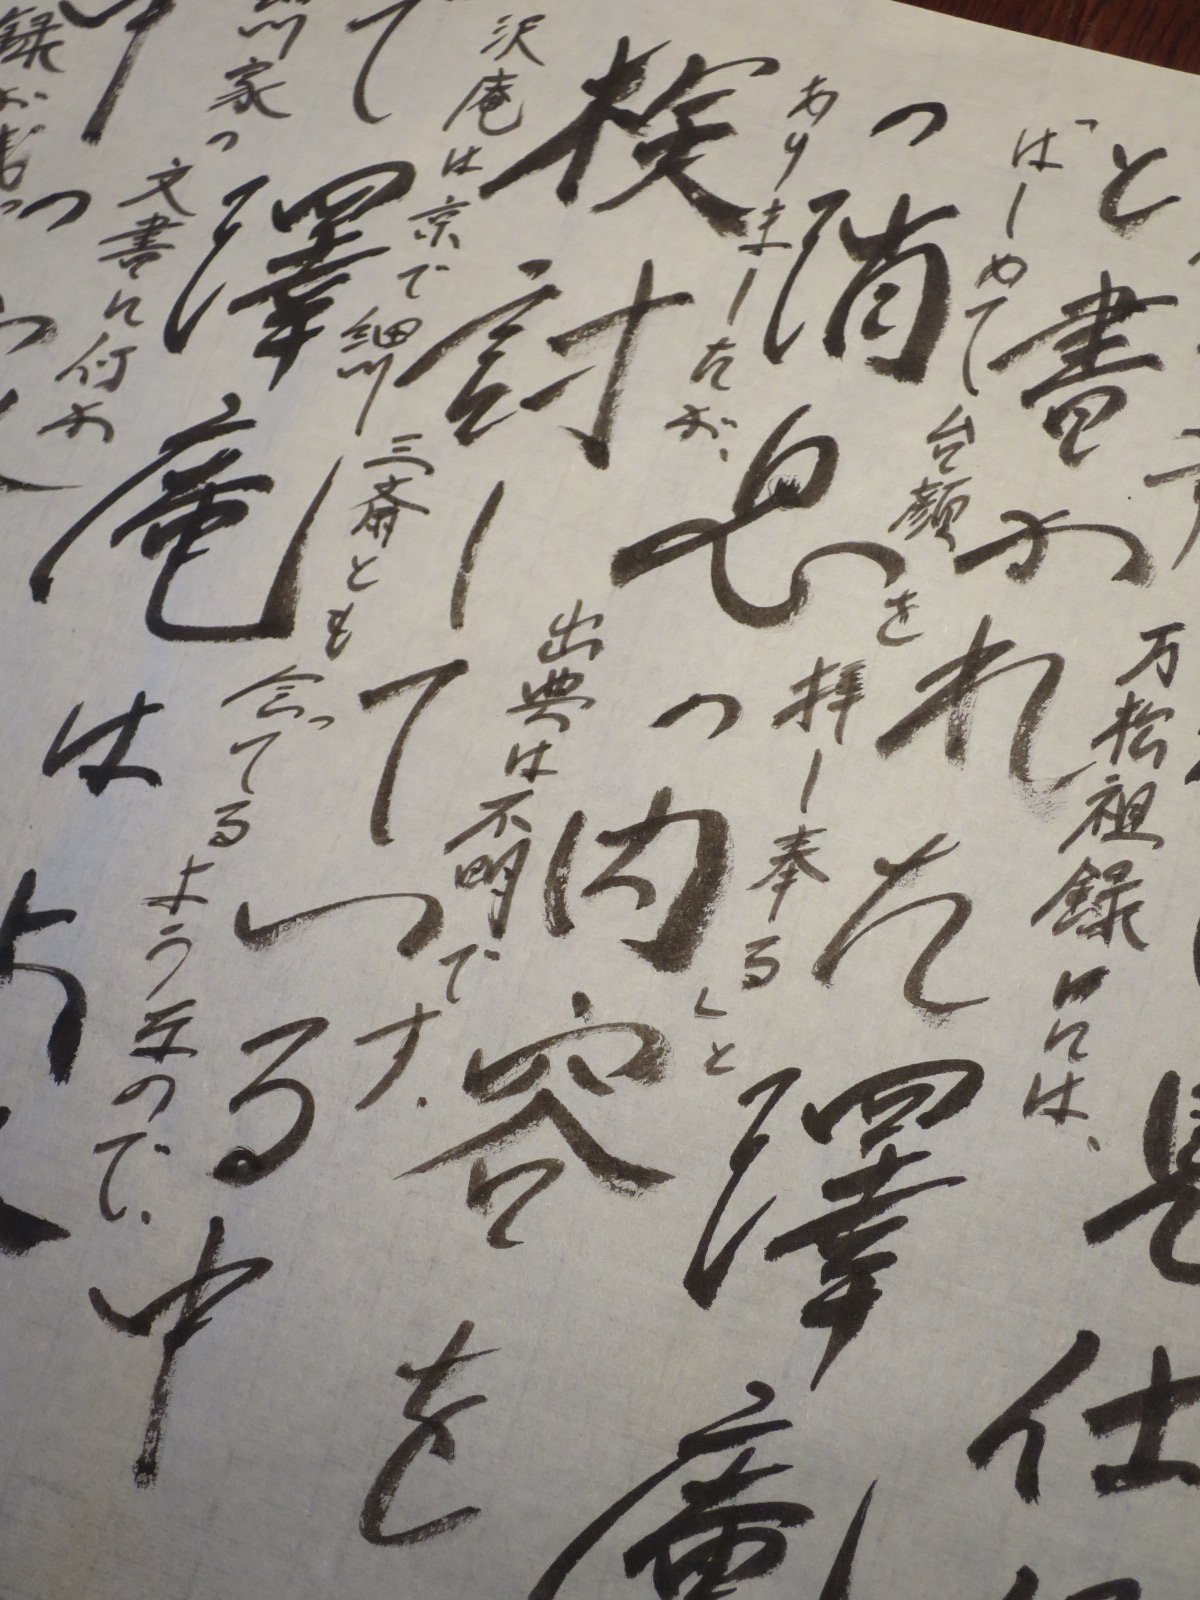 是仕
万松祖録には、
と書かれた澤庵
「はしめて台顔を拝し奉る」と
の消息の内容を
ありましたが、出典は不明です。
検討している中
沢庵は京で細川三斎とも会ってるようなので、
て澤庵は
川家の文書に何か
録が